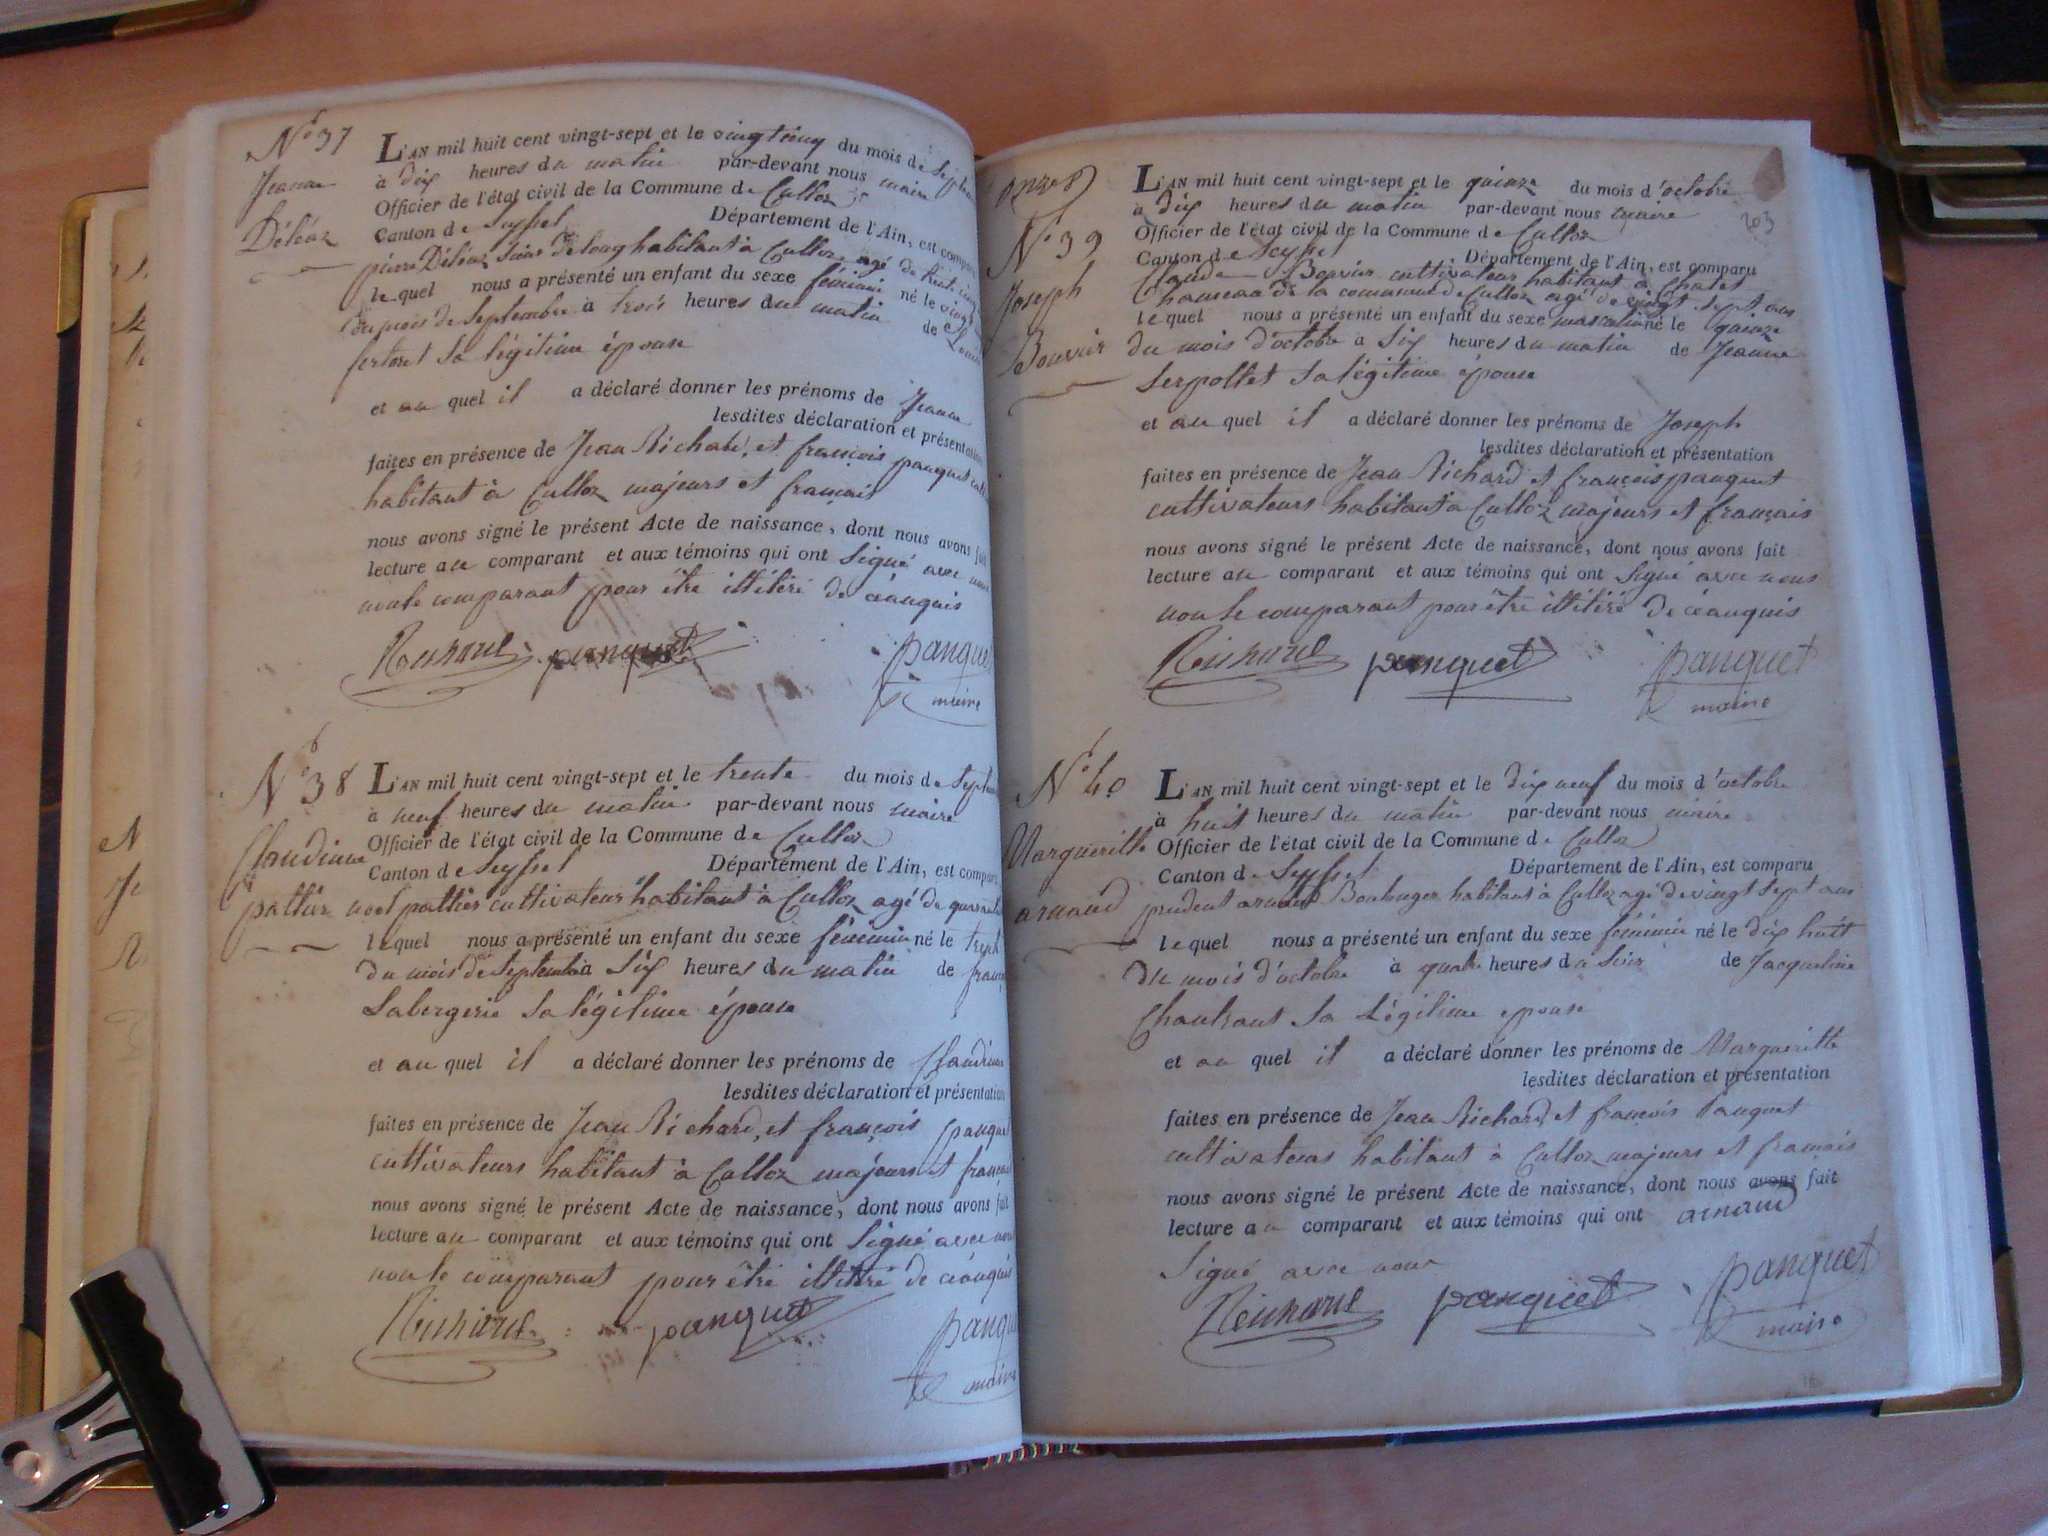 N° 37
Jeanne
Déléaz
L'AN mil huit cent vingt-sept et le vingt cinq du mois de Septem
à dix heures du matin par-devant nous maire
Officier de l'état civil de la Commune de Culloz
Canton de Seyssel Département de l'Ain, est comparu
pierre Déléaz habitant à Culloz agé de trente cinq
le quel nous a présenté un enfant du sexe féminin né le vingt
du mois de Septembre à trois heures du matin de Louise
sa légitime épouse
et au quel il a déclaré donner les prénoms de Jeanne
lesdites déclaration et présentation
faites en présence de Jean Richard, et françois panquet
habitant à Culloz majeurs et français
nous avons signé le présent Acte de naissance, dont nous avons fait
lecture au comparant et aux témoins qui ont Signé avec nous
non le comparant pour être illitéré de ce enquis
Richard panquet panquet
maire
N° 38
Claudinne
pattier
L'AN mil huit cent vingt-sept et le trente du mois de Septem
à neuf heures du matin par-devant nous maire
Officier de l'état civil de la Commune de Culloz
Canton de Seyssel Département de l'Ain, est comparu
noel pattier cultivateur habitant à Culloz agé de quarante
le quel nous a présenté un enfant du sexe féminin né le trente
du mois de Septembre à Six heures du matin de
Labergerie Sa légitime épouse
et au quel il a déclaré donner les prénoms de Claudinne
lesdites déclaration et présentation
faites en présence de Jean Richard, et françois panquet
cultivateurs habitant à Culloz majeurs et français
nous avons signé le présent Acte de naissance, dont nous avons fait
lecture au comparant et aux témoins qui ont Signé avec nous
non le comparant pour être illitéré de ce enquis
Richard panquet panquet
maire
203
N° 39
Joseph
Bouvier
L'AN mil huit cent vingt-sept et le quinze du mois d'octobre
à dix heures du matin par-devant nous maire
Officier de l'état civil de la Commune de Culloz
Canton de Seyssel Département de l'Ain, est comparu
Claude Bouvier cultivateur habitant à Chatel
hameau de la commune de Culloz agé de vingt sept ans
le quel nous a présenté un enfant du sexe masculin né le quinze
du mois d'octobre à Six heures du matin de Jeanne
Serpollet Sa légitime épouse
et au quel il a déclaré donner les prénoms de Joseph
lesdites déclaration et présentation
faites en présence de Jean Richard et françois panquet
cultivateurs habitant à Culloz majeurs et français
nous avons signé le présent Acte de naissance, dont nous avons fait
lecture au comparant et aux témoins qui ont Signé avec nous
non le comparant pour être illitéré de ce enquis
Richard panquet panquet
maire
N° 40
Margueritte
arnaud
L'AN mil huit cent vingt-sept et le dix neuf du mois d'octobre
à huit heures du matin par-devant nous maire
Officier de l'état civil de la Commune de Culloz
Canton de Seyssel Département de l'Ain, est comparu
prudent arnaud Boulanger habitant à Culloz agé de vingt Sept ans
le quel nous a présenté un enfant du sexe féminin né le dix huit
du mois d'octobre à quatre heures du Soir de Jacqueline
Chantrant Sa Légitime epouse
et au quel il a déclaré donner les prénoms de Margueritte
lesdites déclaration et présentation
faites en présence de Jean Richard, et françois Panquet
cultivateurs habitant à Culloz majeurs et français
nous avons signé le présent Acte de naissance, dont nous avons fait
lecture au comparant et aux témoins qui ont arnaud
Signé avec nous
Richard panquet panquet
maire